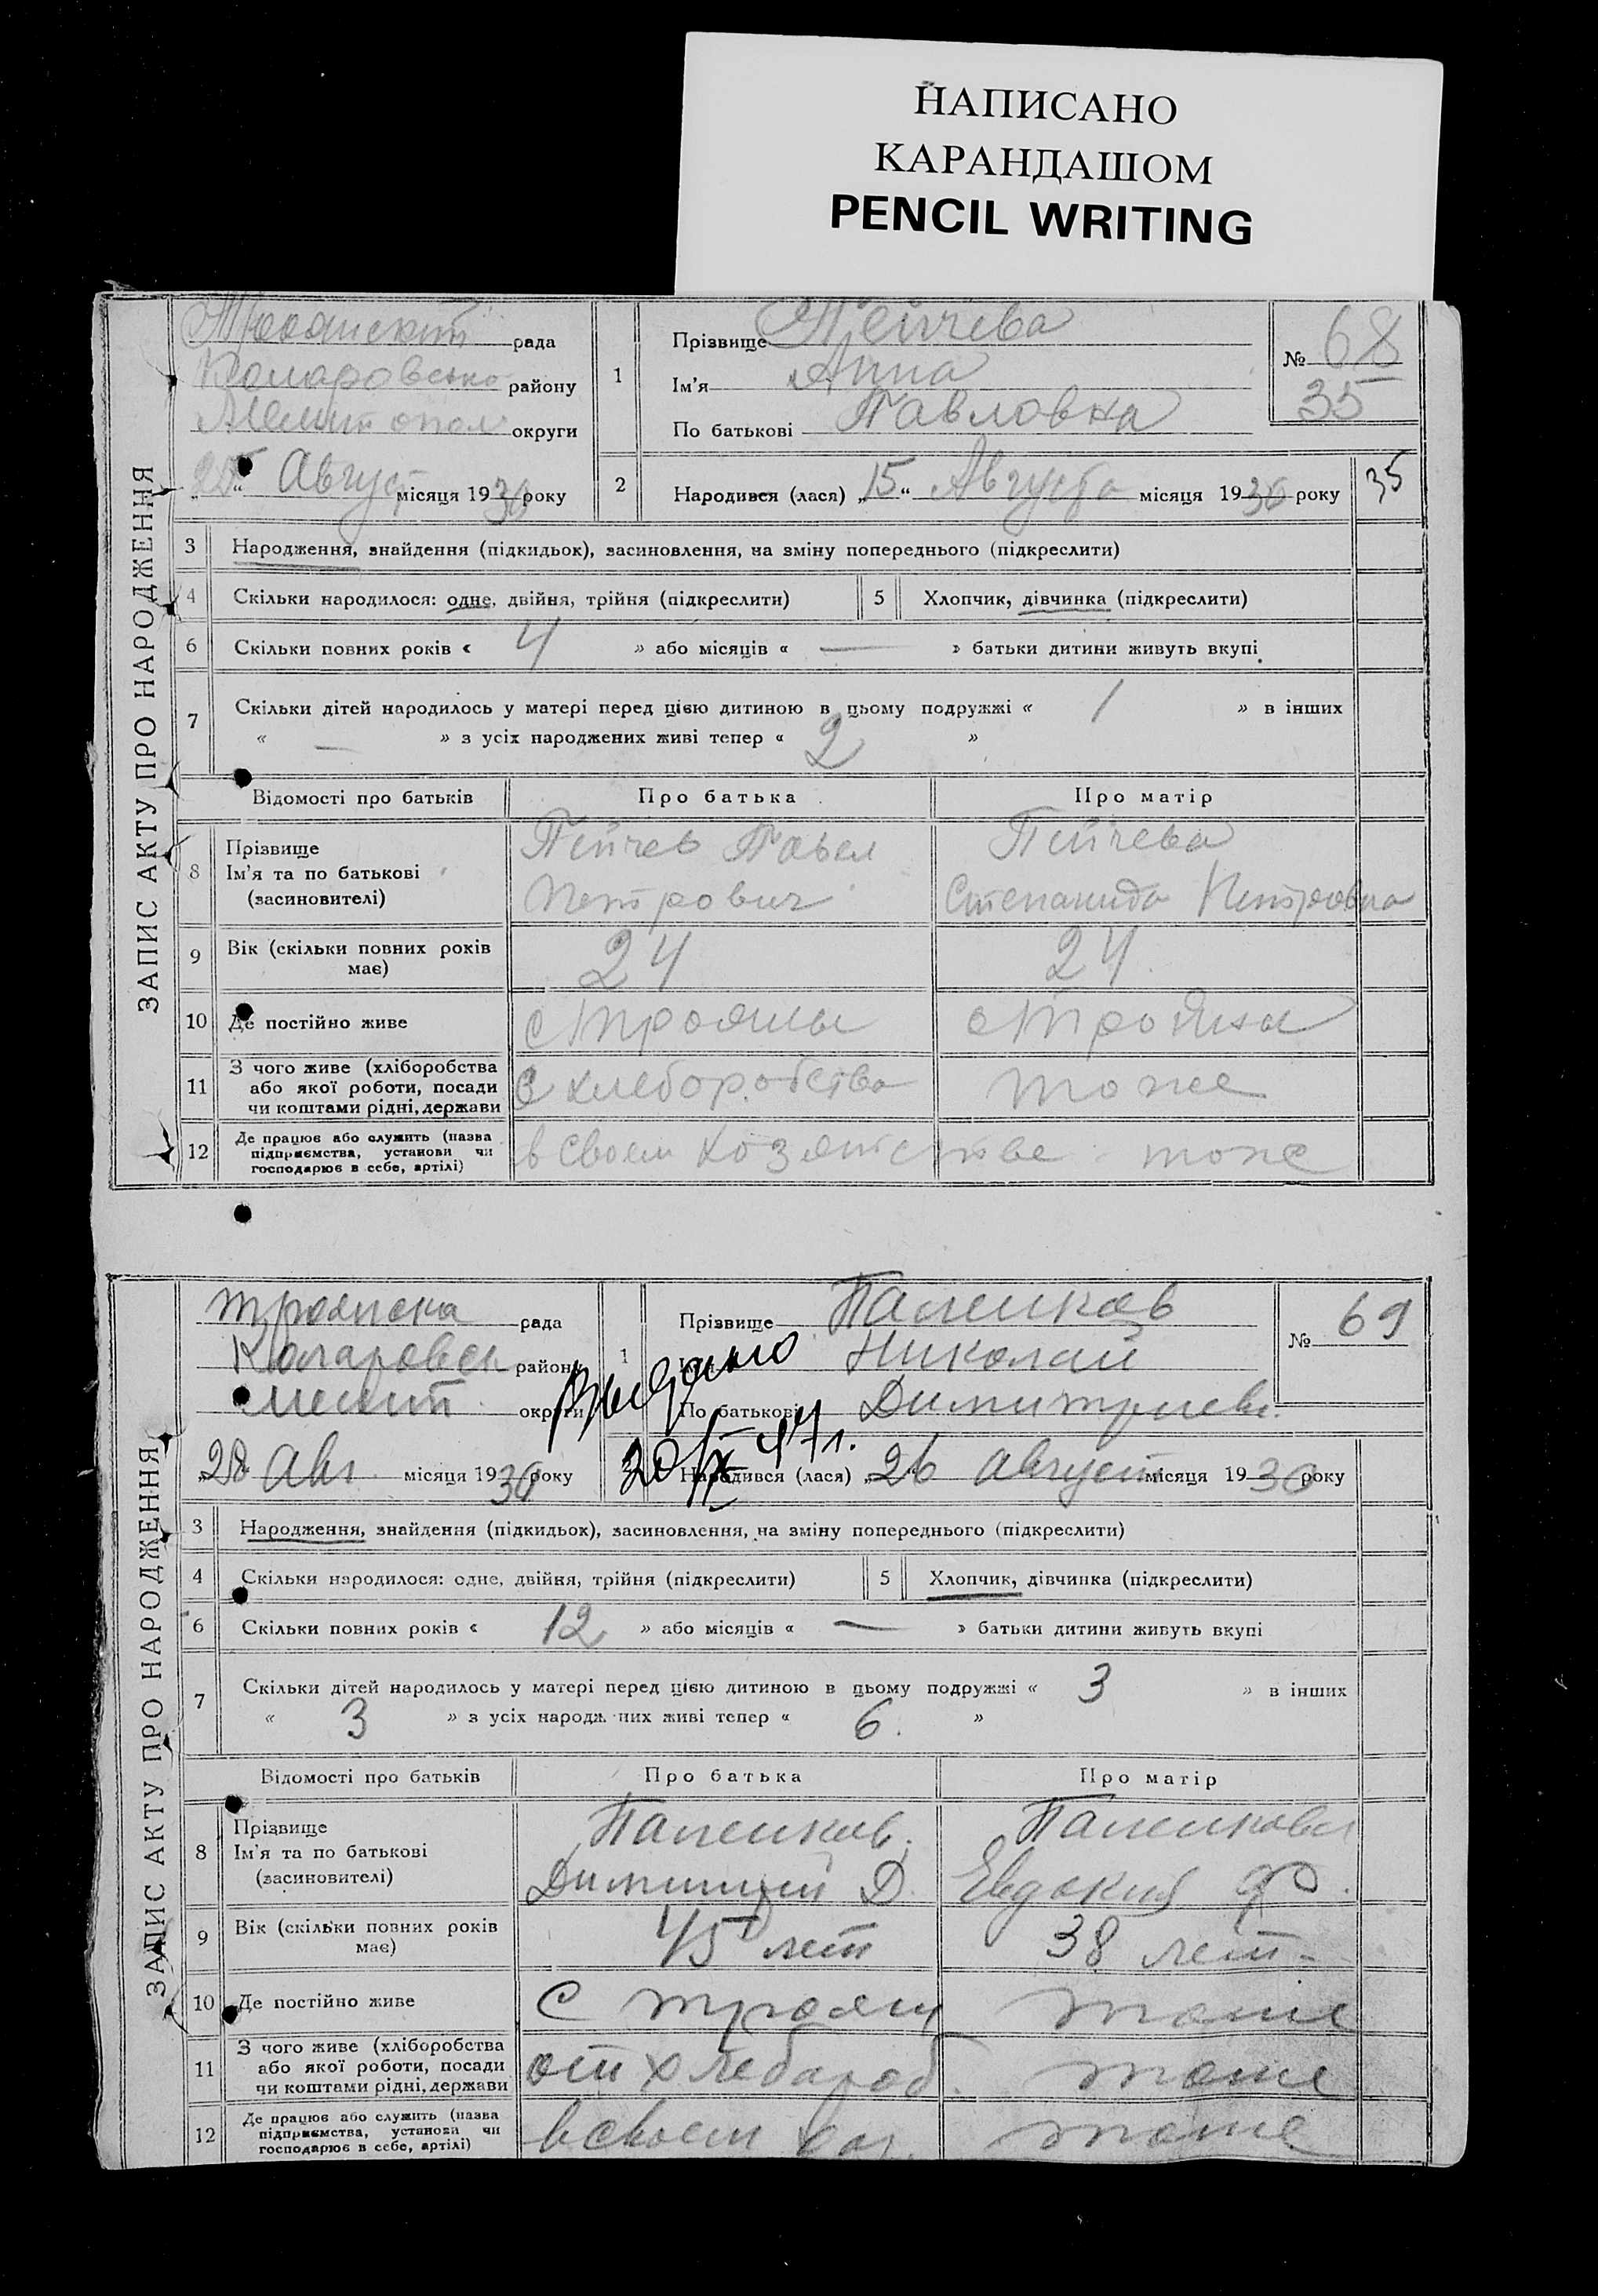 НАПИСАНО
КАРАНДАШОМ
PENCIL WRITING
ЗАПИС АКТУ ПРО НАРОДЖЕННЯ
Троянский рада
Коларовско району
Мелитопол округи
„25“ Август місяця 1930 року
1 Прізвище Пейчева
Ім'я Анна
По батькові Павловна
№ 68
35
2 Народився (лася) „15“ Августа місяця 1930 року
35
3 Народження, знайдення (підкидьок), засиновлення, на зміну попереднього (підкреслити)
4 Скільки народилося: одне, двійня, трійня (підкреслити) 5 Хлопчик, дівчинка (підкреслити)
6 Скільки повних років « 4 » або місяців « — » батьки дитини живуть вкупі
7 Скільки дітей народилось у матері перед цією дитиною в цьому подружжі « 1 » в інших
« — » з усіх народжених живі тепер « 2 »
Відомості про батьків Про батька Про матір
8 Прізвище Ім'я та по батькові (засиновителі)
Пейчев Павел Петрович
Пейчева Степанида Петровна
9 Вік (скільки повних років має) 24 24
10 Де постійно живе с Трояны с Трояна
11 З чого живе (хліборобства або якої роботи, посади чи коштами рідні, держави
С хлеборобства тоже
12 Де працює або служить (назва підприємства, установи чи господарює в себе, артілі)
в своем хозяйстве тоже
ЗАПИС АКТУ ПРО НАРОДЖЕННЯ
трояпска рада
Коларовск району
Мелит округи
„28“ Авг місяця 1930 року
1 Прізвище
Ім'я Николай
По батькові Димитриев.
№ 69
Выдано
30/IX 47 г.
Народився (лася) „26“ Август місяця 1930 року
3 Народження, знайдення (підкидьок), засиновлення, на зміну попереднього (підкреслити)
4 Скільки народилося: одне, двійня, трійня (підкреслити) 5 Хлопчик, дівчинка (підкреслити)
6 Скільки повних років « 12 » або місяців « — » батьки дитини живуть вкупі
7 Скільки дітей народилось у матері перед цією дитиною в цьому подружжі « 3 » в інших
« 3 » з усіх народжених живі тепер « 6. »
Відомості про батьків Про батька Про матір
8 Прізвище Ім'я та по батькові (засиновителі)
Димитрий Д.
Евдокия Ф.
9 Вік (скільки повних років має) 45 лет 38 лет
10 Де постійно живе С Трояны тоже
11 З чого живе (хліборобства або якої роботи, посади чи коштами рідні, держави
от хлебароб. тоже
12 Де працює або служить (назва підприємства, установи чи господарює в себе, артілі)
в своем хоз. тоже